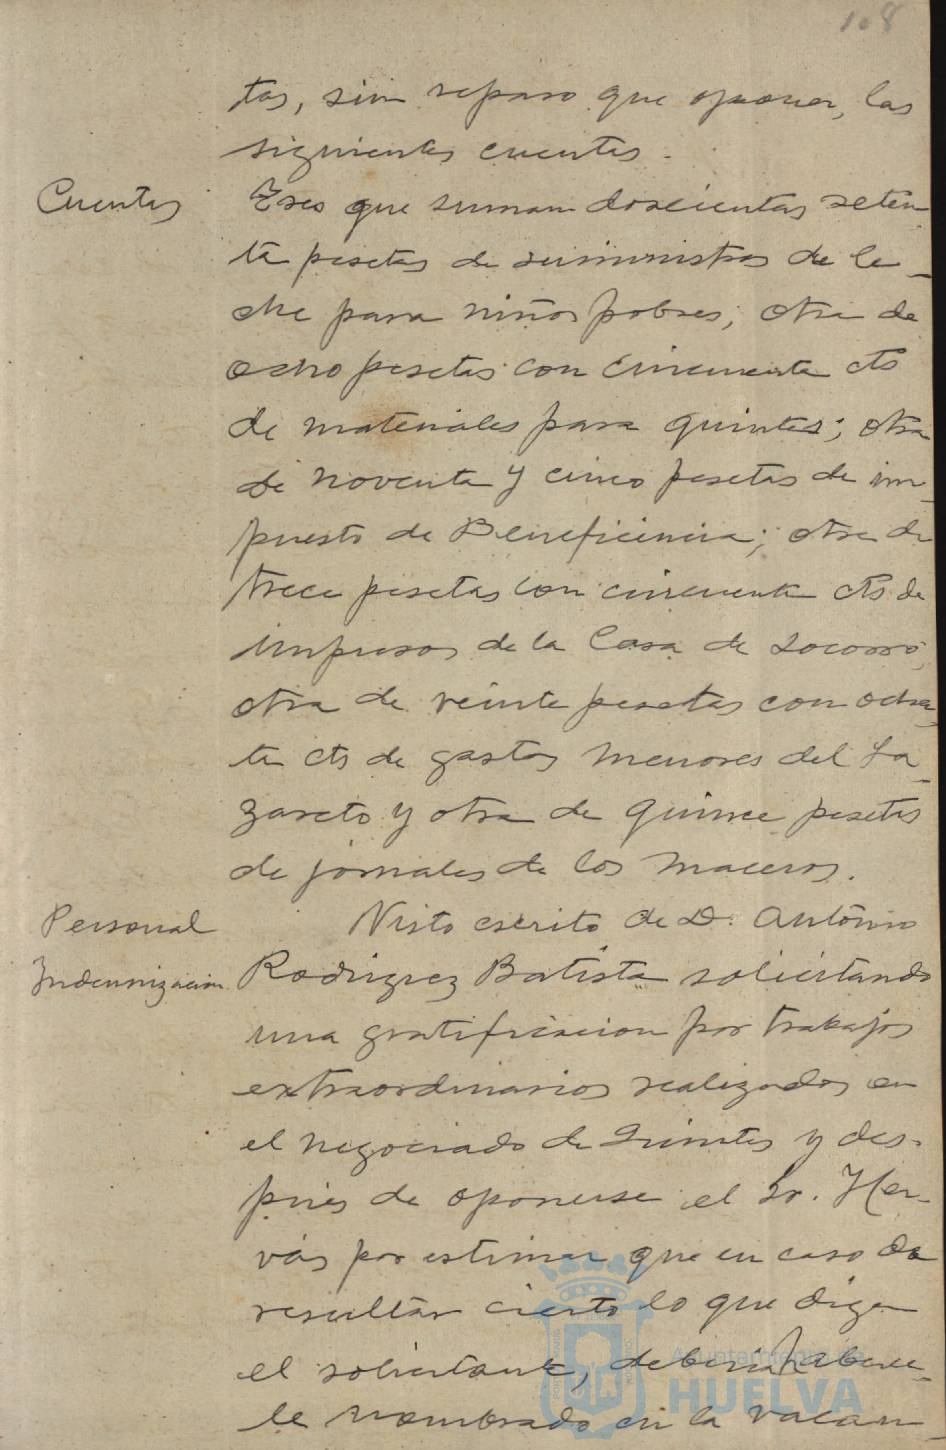 108
tas, sin reparo que oponer, las
siguientes cuentas.
Cuentas
Tres que suman doscientas seten
ta pesetas de suministros de le-
che para niños pobres; otra de
ocho pesetas con cincuenta cts
de materiales para quintas; otra
de noventa y cinco pesetas de im-
puesto de Beneficencia; otra de
trece pesetas con cincuenta cts de
impresos de la Casa de Socorro;
otra de veinte pesetas con ochen
ta cts de gastos menores del La-
zareto y otra de quince pesetas
de jornales de los maceros.
Personal
Indemnizacion
Visto escrito de D. Antonio
Rodriguez Batista solicitando
una gratificacion por trabajos
extraordinarios realizados en
el negociado de Quintas y des-
pues de oponerse el Sr. Her-
vás por estimar que en caso de
resultar cierto lo que dice
el solicitante, deberia haberse-
le nombrado en la vacan
Ayuntamiento de
HUELVA